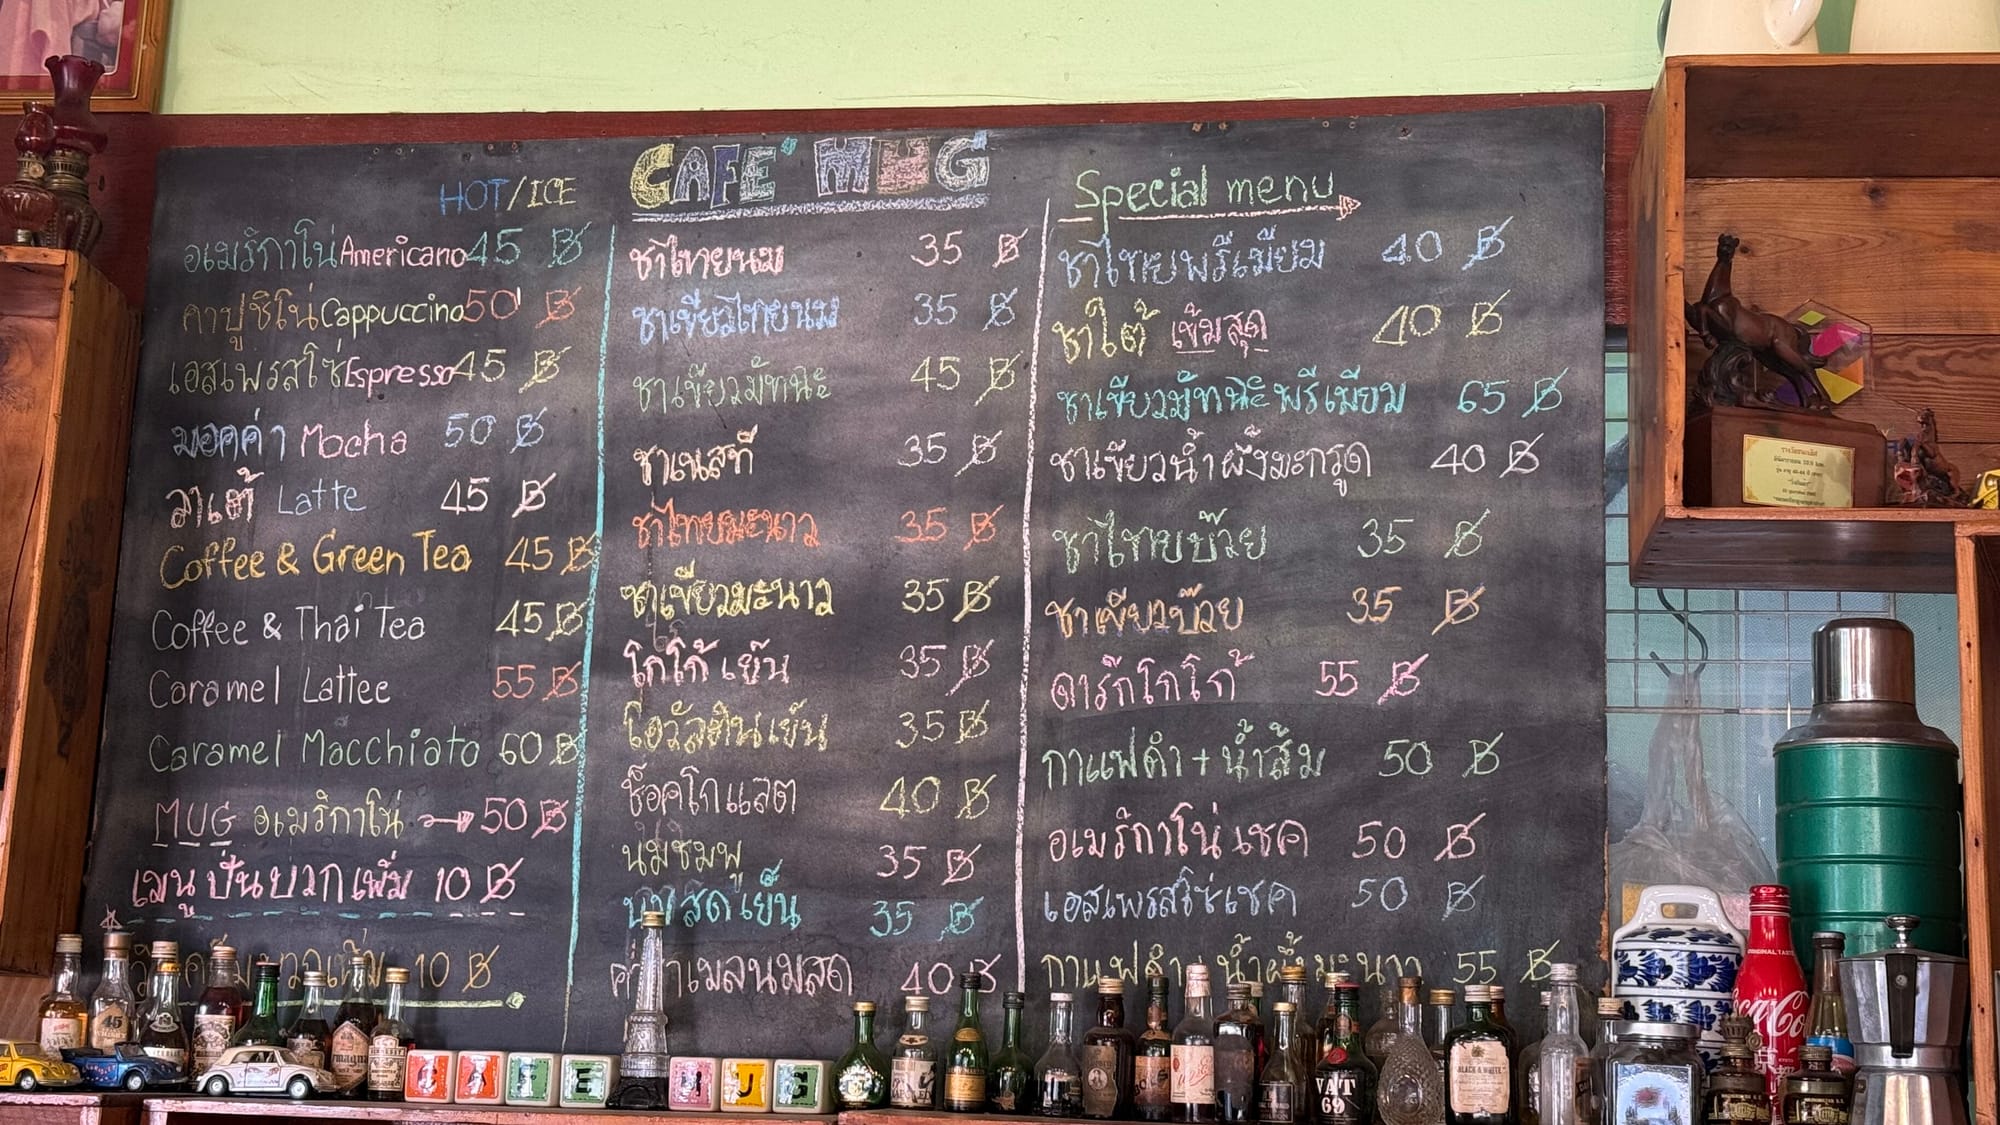 CAFE' MUG
HOT/ICE
อเมริกาโน่ Americano 45 ฿
คาปูชิโน่ Cappuccino 50 ฿
เอสเพรสโซ่ Espresso 45 ฿
มอคค่า Mocha 50 ฿
ลาเต้ Latte 45 ฿
Coffee & Green Tea 45 ฿
Coffee & Thai Tea 45 ฿
Caramel Lattee 55 ฿
Caramel Macchiato 60 ฿
MUG อเมริกาโน่ → 50 ฿
เมนูปั่นบวกเพิ่ม 10 ฿
บวกเพิ่ม 10 ฿
ชาไทยนม 35 ฿
ชาเขียวไทยนม 35 ฿
ชาเขียวมัทฉะ 45 ฿
ชาเนสที 35 ฿
ชาไทยมะนาว 35 ฿
ชาเขียวมะนาว 35 ฿
โกโก้เย็น 35 ฿
โอวัลตินเย็น 35 ฿
ช็อคโกแลต 40 ฿
นมชมพู 35 ฿
นมสดเย็น 35 ฿
คาราเมลนมสด 40 ฿
Special menu
ชาไทยพรีเมียม 40 ฿
ชาใต้ เข้มสุด 40 ฿
ชาเขียวมัทฉะพรีเมียม 65 ฿
ชาเขียวน้ำผึ้งมะกรูด 40 ฿
ชาไทยบ๊วย 35 ฿
ชาเขียวบ๊วย 35 ฿
ดาร์กโกโก้ 55 ฿
กาแฟดำ + น้ำส้ม 50 ฿
อเมริกาโน่เชค 50 ฿
เอสเพรสโซ่เชค 50 ฿
กาแฟดำ + น้ำผึ้งมะนาว 55 ฿
CAFE MUG
45
VAT 69
BLACK & WHITE
ORIGINAL TASTE
Coca